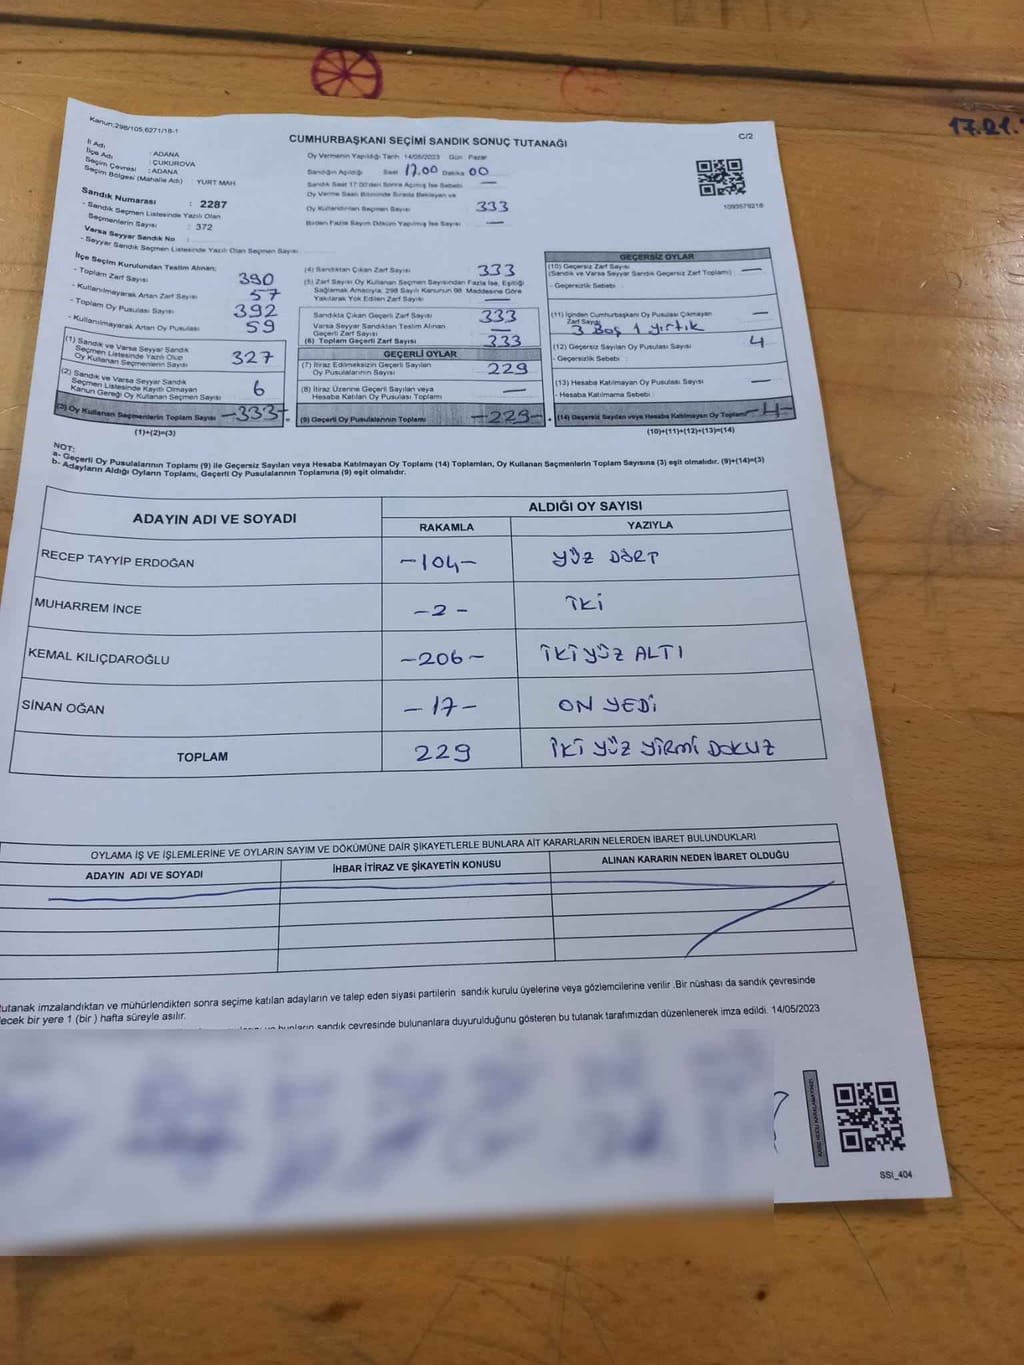 Kanun:298/105,6271/18-1
CUMHURBAŞKANI SEÇİMİ SANDIK SONUÇ TUTANAĞI
C/2
17.21.
İl Adı : ADANA
İlçe Adı : ÇUKUROVA
Seçim Çevresi : ADANA
Seçim Bölgesi (Mahalle Adı) : YURT MAH
Sandık Numarası : 2287
- Sandık Seçmen Listesinde Yazılı Olan
Seçmenlerin Sayısı : 372
Varsa Seyyar Sandık No :
- Seyyar Sandık Seçmen Listesinde Yazılı Olan Seçmen Sayısı
Oy Vermenin Yapıldığı Tarih 14/05/2023 Gün Pazar
Sandığın Açıldığı Saat 17.00 Dakika 00
Sandık Saat 17:00'den Sonra Açılmış İse Sebebi —
Oy Verme Saati Bitiminde Sırada Bekleyen ve
Oy Kullandırılan Seçmen Sayısı : 333
Birden Fazla Sayım Döküm Yapılmış İse Sayısı —
1093579218
İlçe Seçim Kurulundan Teslim Alınan:
- Toplam Zarf Sayısı 390
- Kullanılmayarak Artan Zarf Sayısı 57
- Toplam Oy Pusulası Sayısı 392
- Kullanılmayarak Artan Oy Pusulası 59
(1) Sandık ve Varsa Seyyar Sandık
Seçmen Listesinde Yazılı Olup
Oy Kullanan Seçmenlerin Sayısı 327
(2) Sandık ve Varsa Seyyar Sandık
Seçmen Listesinde Kayıtlı Olmayan
Kanun Gereği Oy Kullanan Seçmen Sayısı 6
(3) Oy Kullanan Seçmenlerin Toplam Sayısı -333-
(1)+(2)=(3)
(4) Sandıktan Çıkan Zarf Sayısı 333
(5) Zarf Sayısı Oy Kullanan Seçmen Sayısından Fazla İse, Eşitliği
Sağlamak Amacıyla, 298 Sayılı Kanunun 98. Maddesine Göre
Yakılarak Yok Edilen Zarf Sayısı —
Sandıkta Çıkan Geçerli Zarf Sayısı 333
Varsa Seyyar Sandıktan Teslim Alınan
Geçerli Zarf Sayısı —
(6) Toplam Geçerli Zarf Sayısı 333
GEÇERLİ OYLAR
(7) İtiraz Edilmeksizin Geçerli Sayılan
Oy Pusulalarının Sayısı 229
(8) İtiraz Üzerine Geçerli Sayılan veya
Hesaba Katılan Oy Pusulası Toplamı —
= (9) Geçerli Oy Pusulalarının Toplamı -229-
GEÇERSİZ OYLAR
(10) Geçersiz Zarf Sayısı
(Sandık ve Varsa Seyyar Sandık Geçersiz Zarf Toplamı) —
- Geçersizlik Sebebi :
(11) İçinden Cumhurbaşkanı Oy Pusulası Çıkmayan
Zarf Sayısı —
3 Boş 1 yırtık
(12) Geçersiz Sayılan Oy Pusulası Sayısı 4
- Geçersizlik Sebebi :
(13) Hesaba Katılmayan Oy Pusulası Sayısı —
- Hesaba Katılmama Sebebi :
+ (14) Geçersiz Sayılan veya Hesaba Katılmayan Oy Toplamı -4-
(10)+(11)+(12)+(13)=(14)
NOT:
a- Geçerli Oy Pusulalarının Toplamı (9) ile Geçersiz Sayılan veya Hesaba Katılmayan Oy Toplamı (14) Toplamları, Oy Kullanan Seçmenlerin Toplam Sayısına (3) eşit olmalıdır. (9)+(14)=(3)
b- Adayların Aldığı Oyların Toplamı, Geçerli Oy Pusulalarının Toplamına (9) eşit olmalıdır.
ADAYIN ADI VE SOYADI
ALDIĞI OY SAYISI
RAKAMLA YAZIYLA
RECEP TAYYİP ERDOĞAN -104- YÜZ DÖRT
MUHARREM İNCE -2- İKİ
KEMAL KILIÇDAROĞLU -206- İKİ YÜZ ALTI
SİNAN OĞAN -17- ON YEDİ
TOPLAM 229 İKİ YÜZ YİRMİ DOKUZ
OYLAMA İŞ VE İŞLEMLERİNE VE OYLARIN SAYIM VE DÖKÜMÜNE DAİR ŞİKAYETLERLE BUNLARA AİT KARARLARIN NELERDEN İBARET BULUNDUKLARI
ADAYIN ADI VE SOYADI İHBAR İTİRAZ VE ŞİKAYETİN KONUSU ALINAN KARARIN NEDEN İBARET OLDUĞU
tutanak imzalandıktan ve mühürlendikten sonra seçime katılan adayların ve talep eden siyasi partilerin sandık kurulu üyelerine veya gözlemcilerine verilir .Bir nüshası da sandık çevresinde
ecek bir yere 1 (bir ) hafta süreyle asılır.
bunların sandık çevresinde bulunanlara duyurulduğunu gösteren bu tutanak tarafımızdan düzenlenerek imza edildi. 14/05/2023
SSI_404